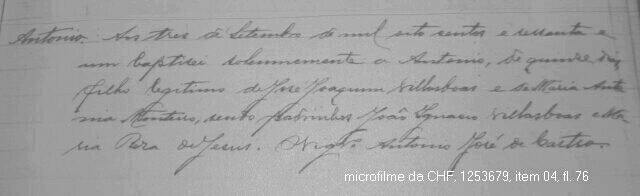 Antonio. Aos tres de Setembro de mil oito centos e sessenta e
um baptizei solemnemente a Antonio, de quinze dias
filho legitimo de José Joaquim Villasboas e de Maria Anto
nia Monteiro, sendo padrinhos João Ignacio Villasboas e Ma
ria Roza de Jesus. Vigrº Antonio José de Castro.
microfilme da CHF, 1253679, item 04, fl. 76